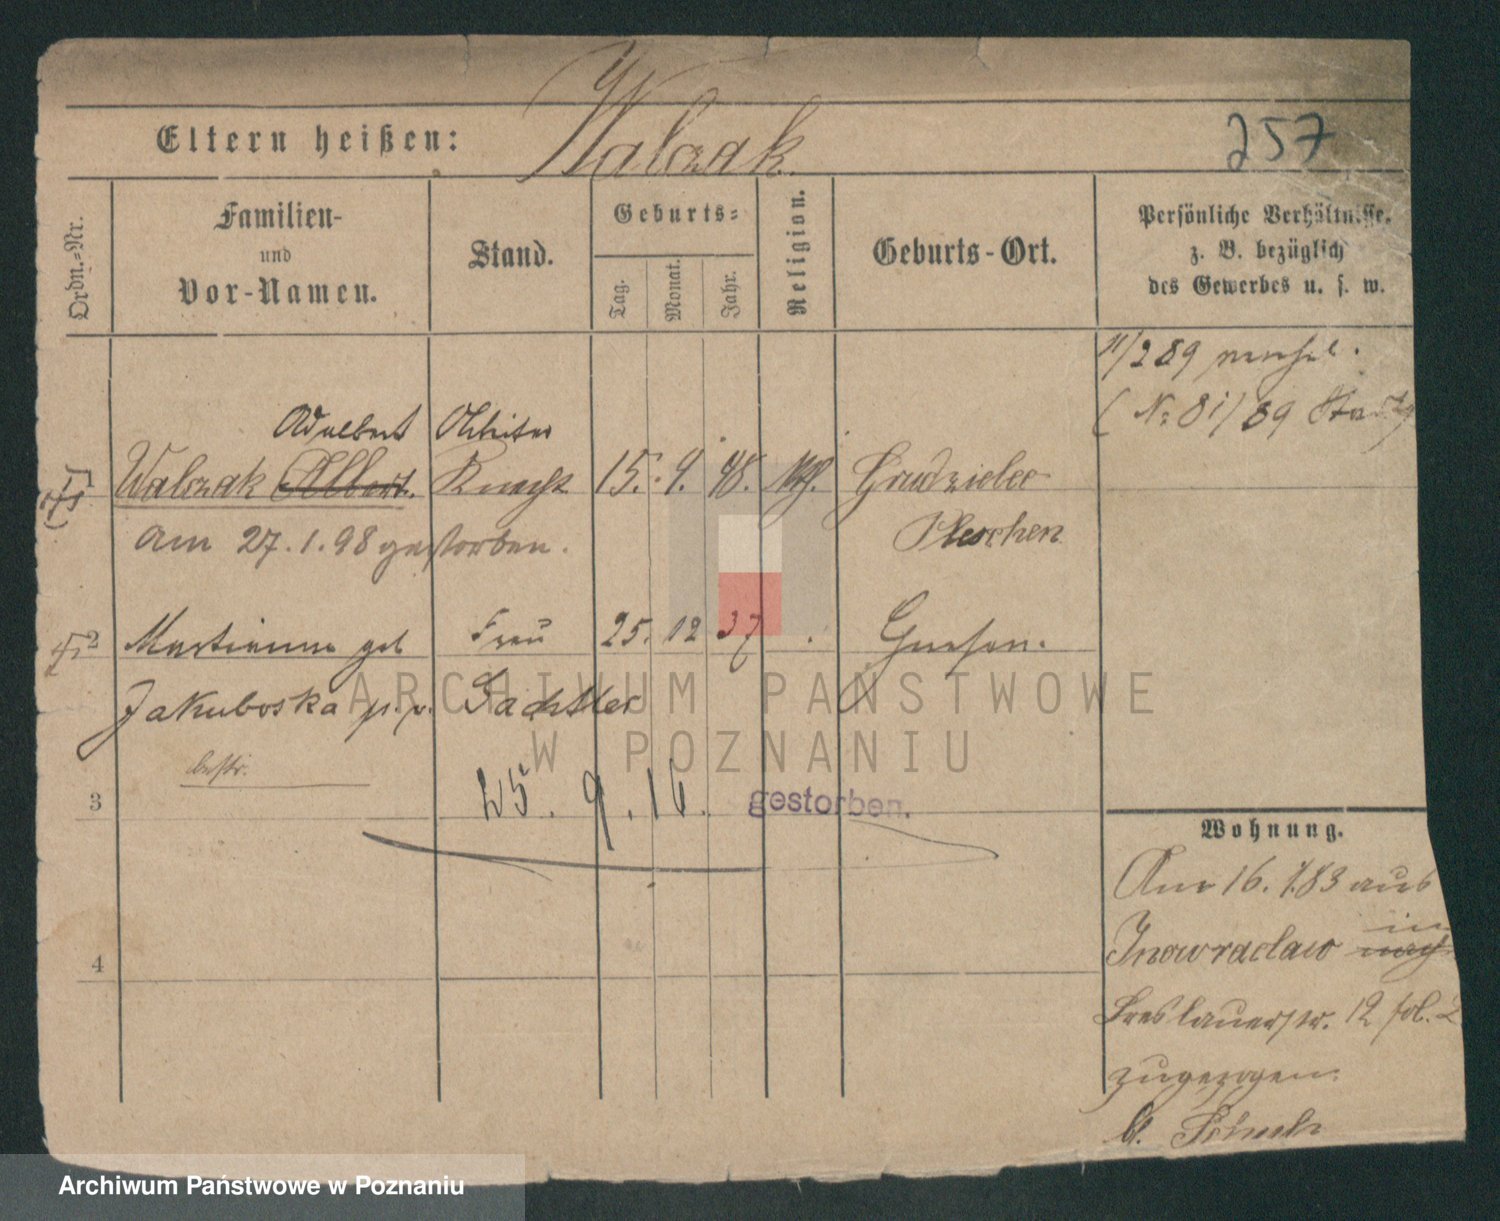 Eltern heißen: Walczak
257
Ordn.-Nr.
Familien-
und
Vor-Namen.
Stand.
Geburts-
Tag.
Monat.
Jahr.
Religion.
Geburts-Ort.
Persönliche Verhältnisse.
z. B. bezüglich
des Gewerbes u. s. w.
11/2 89
(No 81/89
Adalbert Arbeiter
1 Walczak Albert. Knecht 15. 9. 48. kth. Grudzielec
Pleschen
Am 27.1.98 gestorben.
2 Martianna geb Frau 25. 12 37 Gnesen.
Jakuboska
bestr.
3
25. 9. 16. gestorben.
4
Wohnung.
Am 16. 1.83 aus
in
Inowraclaw nach
Breslauerstr. 12 fol. 2
zugezogen.
b.
ARCHIWUM PAŃSTWOWE
W POZNANIU
Archiwum Państwowe w Poznaniu